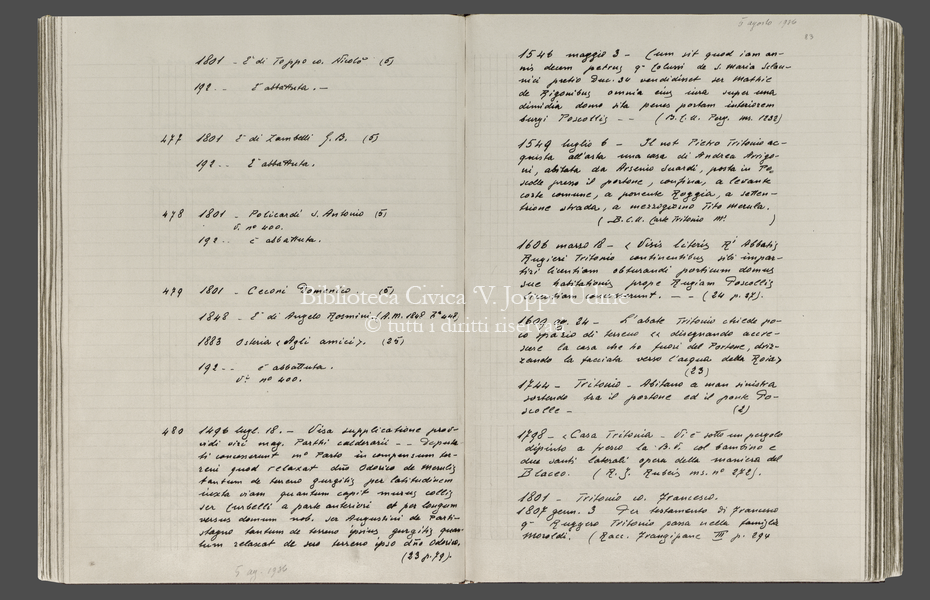 1801 - È di Toppo co. Nicolò (5)
192.. È abbattuta. -
477 1801 È di Zambelli G.B. (5)
192.. È abbattuta.
478 1801 - Policardi S. Antonio (5)
V. nº 400.
192.. è abbattuta.
479 1801 - Ceconi Domenico. (5)
1848 - È di Angelo Rosmini (A.M. 1848
1883 Osteria «Agli amici». (25)
192.. è abbattuta.
Vi nº 400.
480 1496 lugl. 18. - Visa supplicatione prov-
vidi viri mag. Parthi calderarii - - Deputa-
ti concesserunt mº Parto in compensum ter-
reni quod relaxat dño Odorico de Merulis
tantum de terreno gurgitis per latitudinem
iuxta viam quantum capit murus collis
ser Curbelli a parte anteriori et per longum
versus domum nob. ser Augustini de Parti-
stagno tantum de terreno ipsius gurgitis quan-
tum relaxat de suo terreno ipso dño Odorico.
(23 p. 79).
5 ag. 1936
5 agosto 1936
83
1546 maggio 3 - Cum sit quod iam an-
nis decem petrus qº de S. Maria Sclau-
nici pretio Duc. 34 vendidisset ser Mathie
de Rigonibus omnia eius iura super una
dimidia domo sita penes portam interiorem
burgi Poscollis - - (B.C.U. Perg. ms. 1232)
1549 luglio 6 - Il not Pietro Tritonio ac-
quista all'asta una casa di Andrea Arrigo-
ni, abitata da Arsenio Suardi, posta in Po-
scolle presso il portone, confina, a levante
corte comune, a ponente Roggia, a setten-
trione strada, a mezzogiorno Tito Merula.
(B.C.U. Carte Tritonio M! )
1606 marzo 18 - «Visis literis Rⁱ Abbatis
Rugieri Tritonio continentibus sibi impar-
tiri licentiam obturandi porticum domus
sue habitationis prope Rugiam Poscollis
licentiam concesserunt. - - (24 p. 37).
24 - L'abate Tritonio chiede po-
co spazio di terreno «disegnando accre-
scere la casa che ho fuori del Portone, driz-
zando la facciata verso l'acqua della Roia»
(23)
1744 - Tritonio - Abitano a man sinistra
sortendo tra il portone ed il ponte Po-
scolle - (2)
1798 - «Casa Tritonia - Vi è sotto un pergolo
dipinto a fresco la B.V. col bambino e
due santi laterali opera della maniera del
Blaceo. (R.G. Rubeis ms. nº 272).
1801 - Tritonio co. Francesco.
1807 genn. 3 Per testamento di Francesco
qº Ruggero Tritonio passa nella famiglia
Moroldi. (Racc. Frangipane III p. 294
Biblioteca Civica 'V. Joppi' Udine
© tutti i diritti riservati